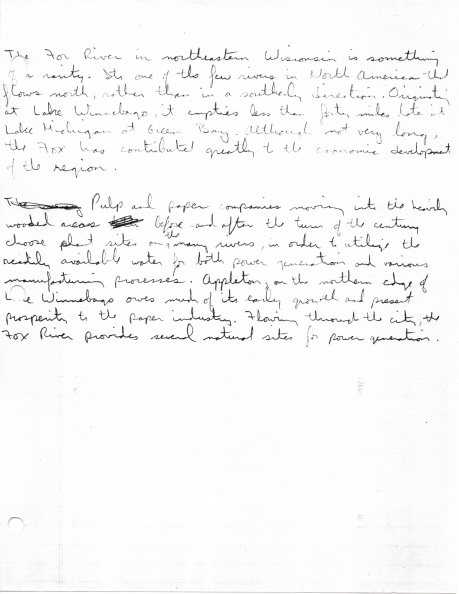 The Fox River in northeastern Wisconsin is something
of a rarity. Its one of the few rivers in North America that
flows north, rather than in a southerly direction. Originating
at Lake Winnebago, it empties less than forty miles late it
Lake Michigan at Green Bay. Although not very long,
the Fox has contributed greatly to the economic development
of the region.
Pulp and paper companies moving into the heavily
wooded areas before and after the turn of the century
choose plant sites on the many rivers, in order to utilize the
readily available water for both power generation and various
manufacturing processes. Appleton, on the northern edge of
Lake Winnebago owes much of its early growth and present
prosperity to the paper industry. Flowing through the city, the
Fox River provides several natural sites for power generation.